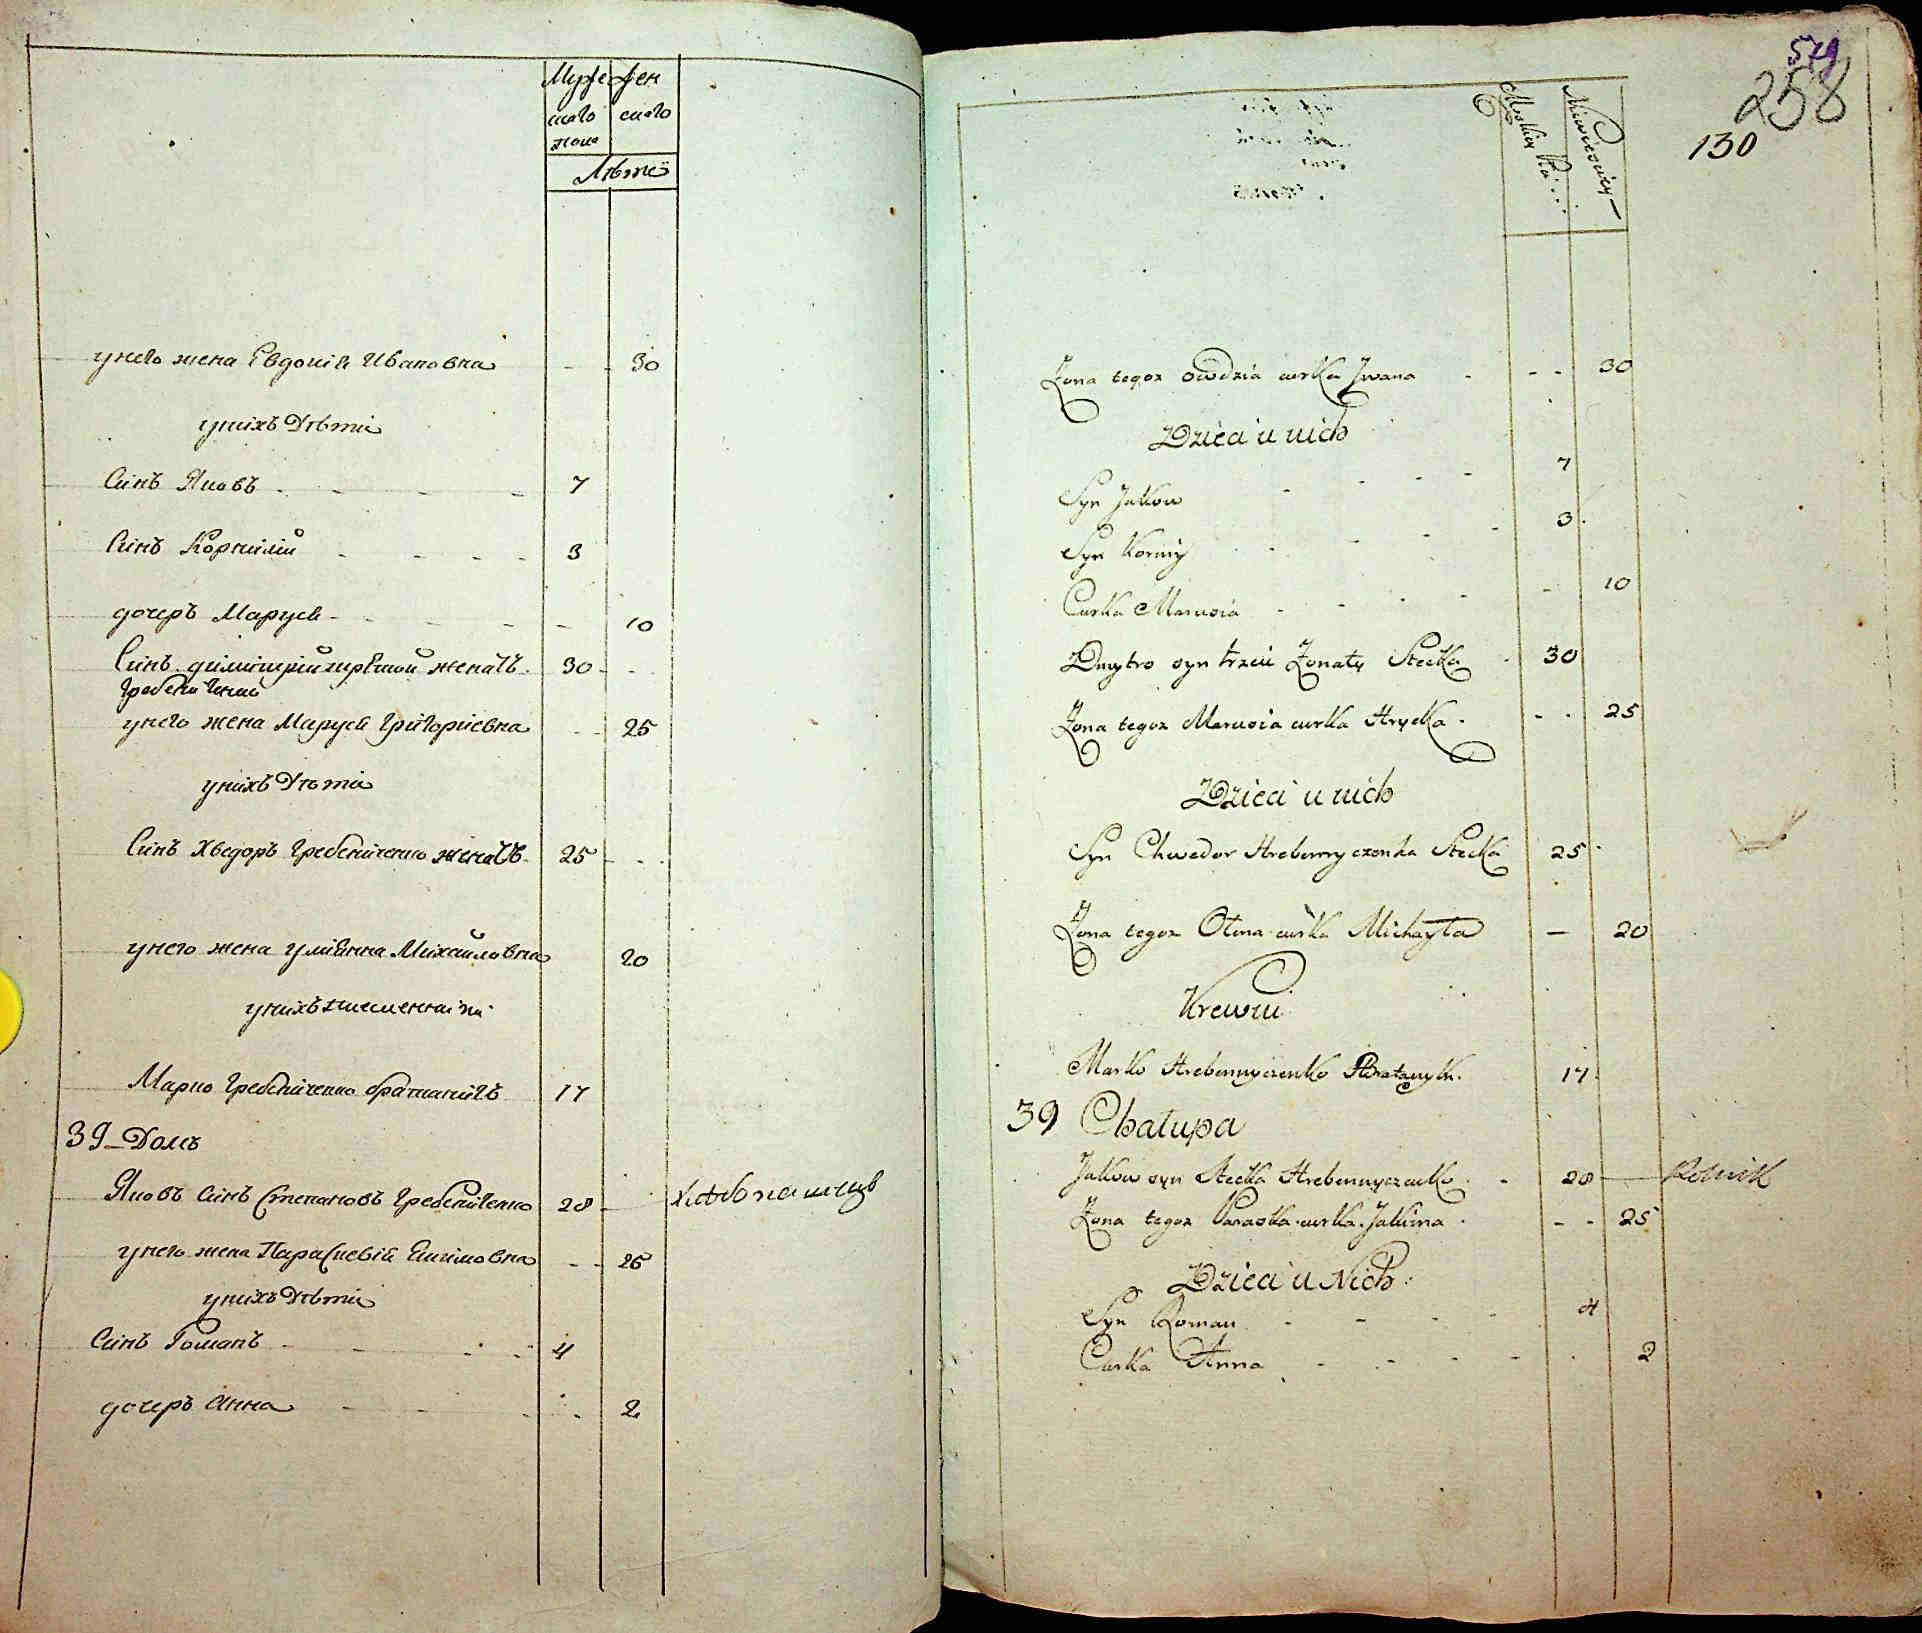 Муже жен
скаго скаго
пола
Лѣтъ
унего жена Евдокія Ивановна - - 30
унихъ Дѣти
Синъ Яковъ - - - - 7
Синъ Корнилій - - - - 3
дочеръ Маруся - - - - - 10
Синъ димитрій третій женатъ 30 - -
Гребениченко
унего жена Маруся Григориевна - - 25
унихъ Дѣти
Синъ Хведоръ Гребениченко женатъ 25 - -
унего жена Улиянна Михайловна 20
унихъ племенники
Марко Гребениченко братаничъ 17
39 Домъ
Яковъ Синъ Степановъ Гребениченко 28 - хлѣбопашецъ
унего жена Парасковія Екимовна - - 25
унихъ Дѣти
Синъ Романъ - - - - 4
дочеръ Анна - - - - - 2
579
258
130
Męskiey
Niewiesciey
Żona tegoż Owdzia curka Jwana - - - 30
Dzieci u nich
Syn Jakow - - - - 7
Syn Korniy - - - - - 3
Curka Marusia - - - - - 10
Dmytro syn trzeci Żonaty Stecka - 30
Żona tegoż Marusia curka Hrycka - - - 25
Dzieci u nich
Syn Chwedor Hrebennyczenka Stecka 25
Żona tegoż Olena curka Michayła - 20
Krewni
Marko Hrebennyczenko Bratanyk 17
39 Chałupa
Jakow syn Stecka Hrebennyczenko - - 28 - Rolnik
Żona tegoż Paraska curka Jakima - - - 25
Dzieci u Nich
Syn Roman - - - - 4
Curka Anna - - - - - 2